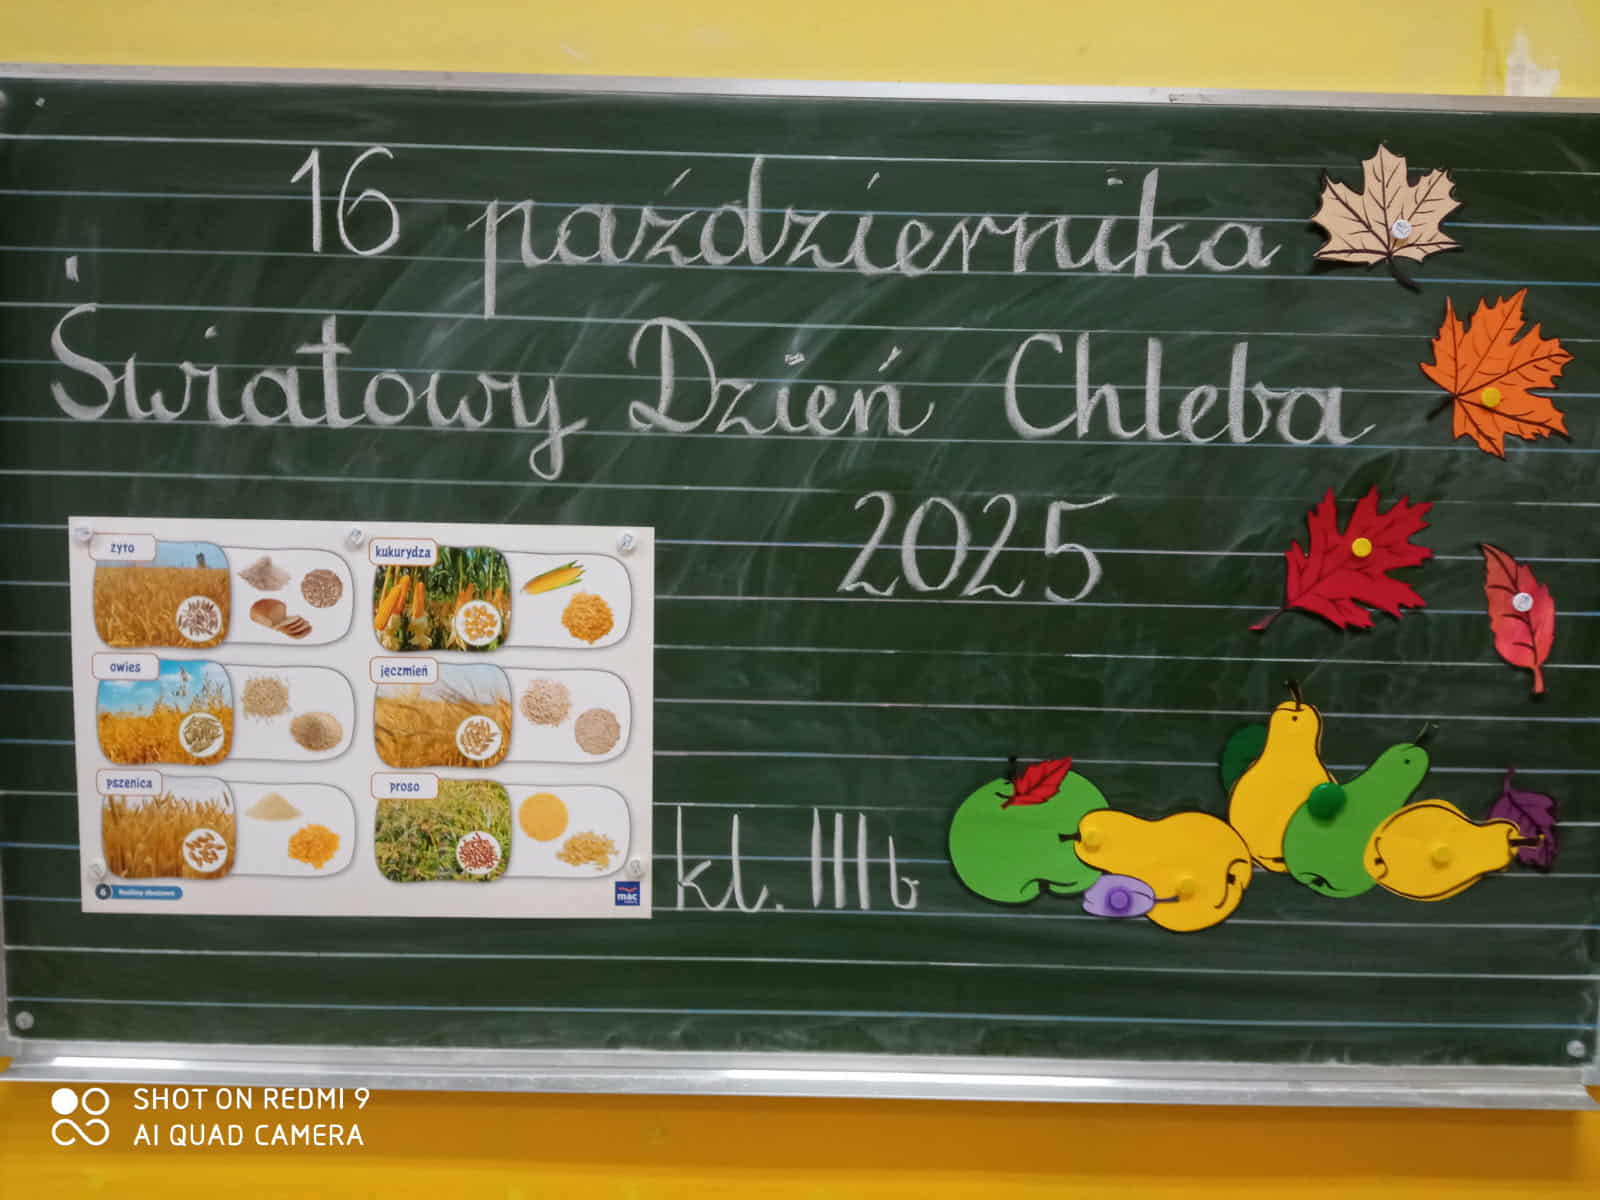 16 października
Światowy Dzień Chleba
2025
żyto
kukurydza
owies
jęczmień
pszenica
proso
6 Rośliny zbożowe
mac
kl. IIIb
SHOT ON REDMI 9
AI QUAD CAMERA